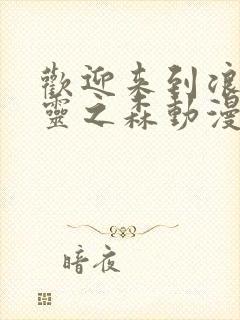 歡迎来到浪
靈之森動漫
暗夜